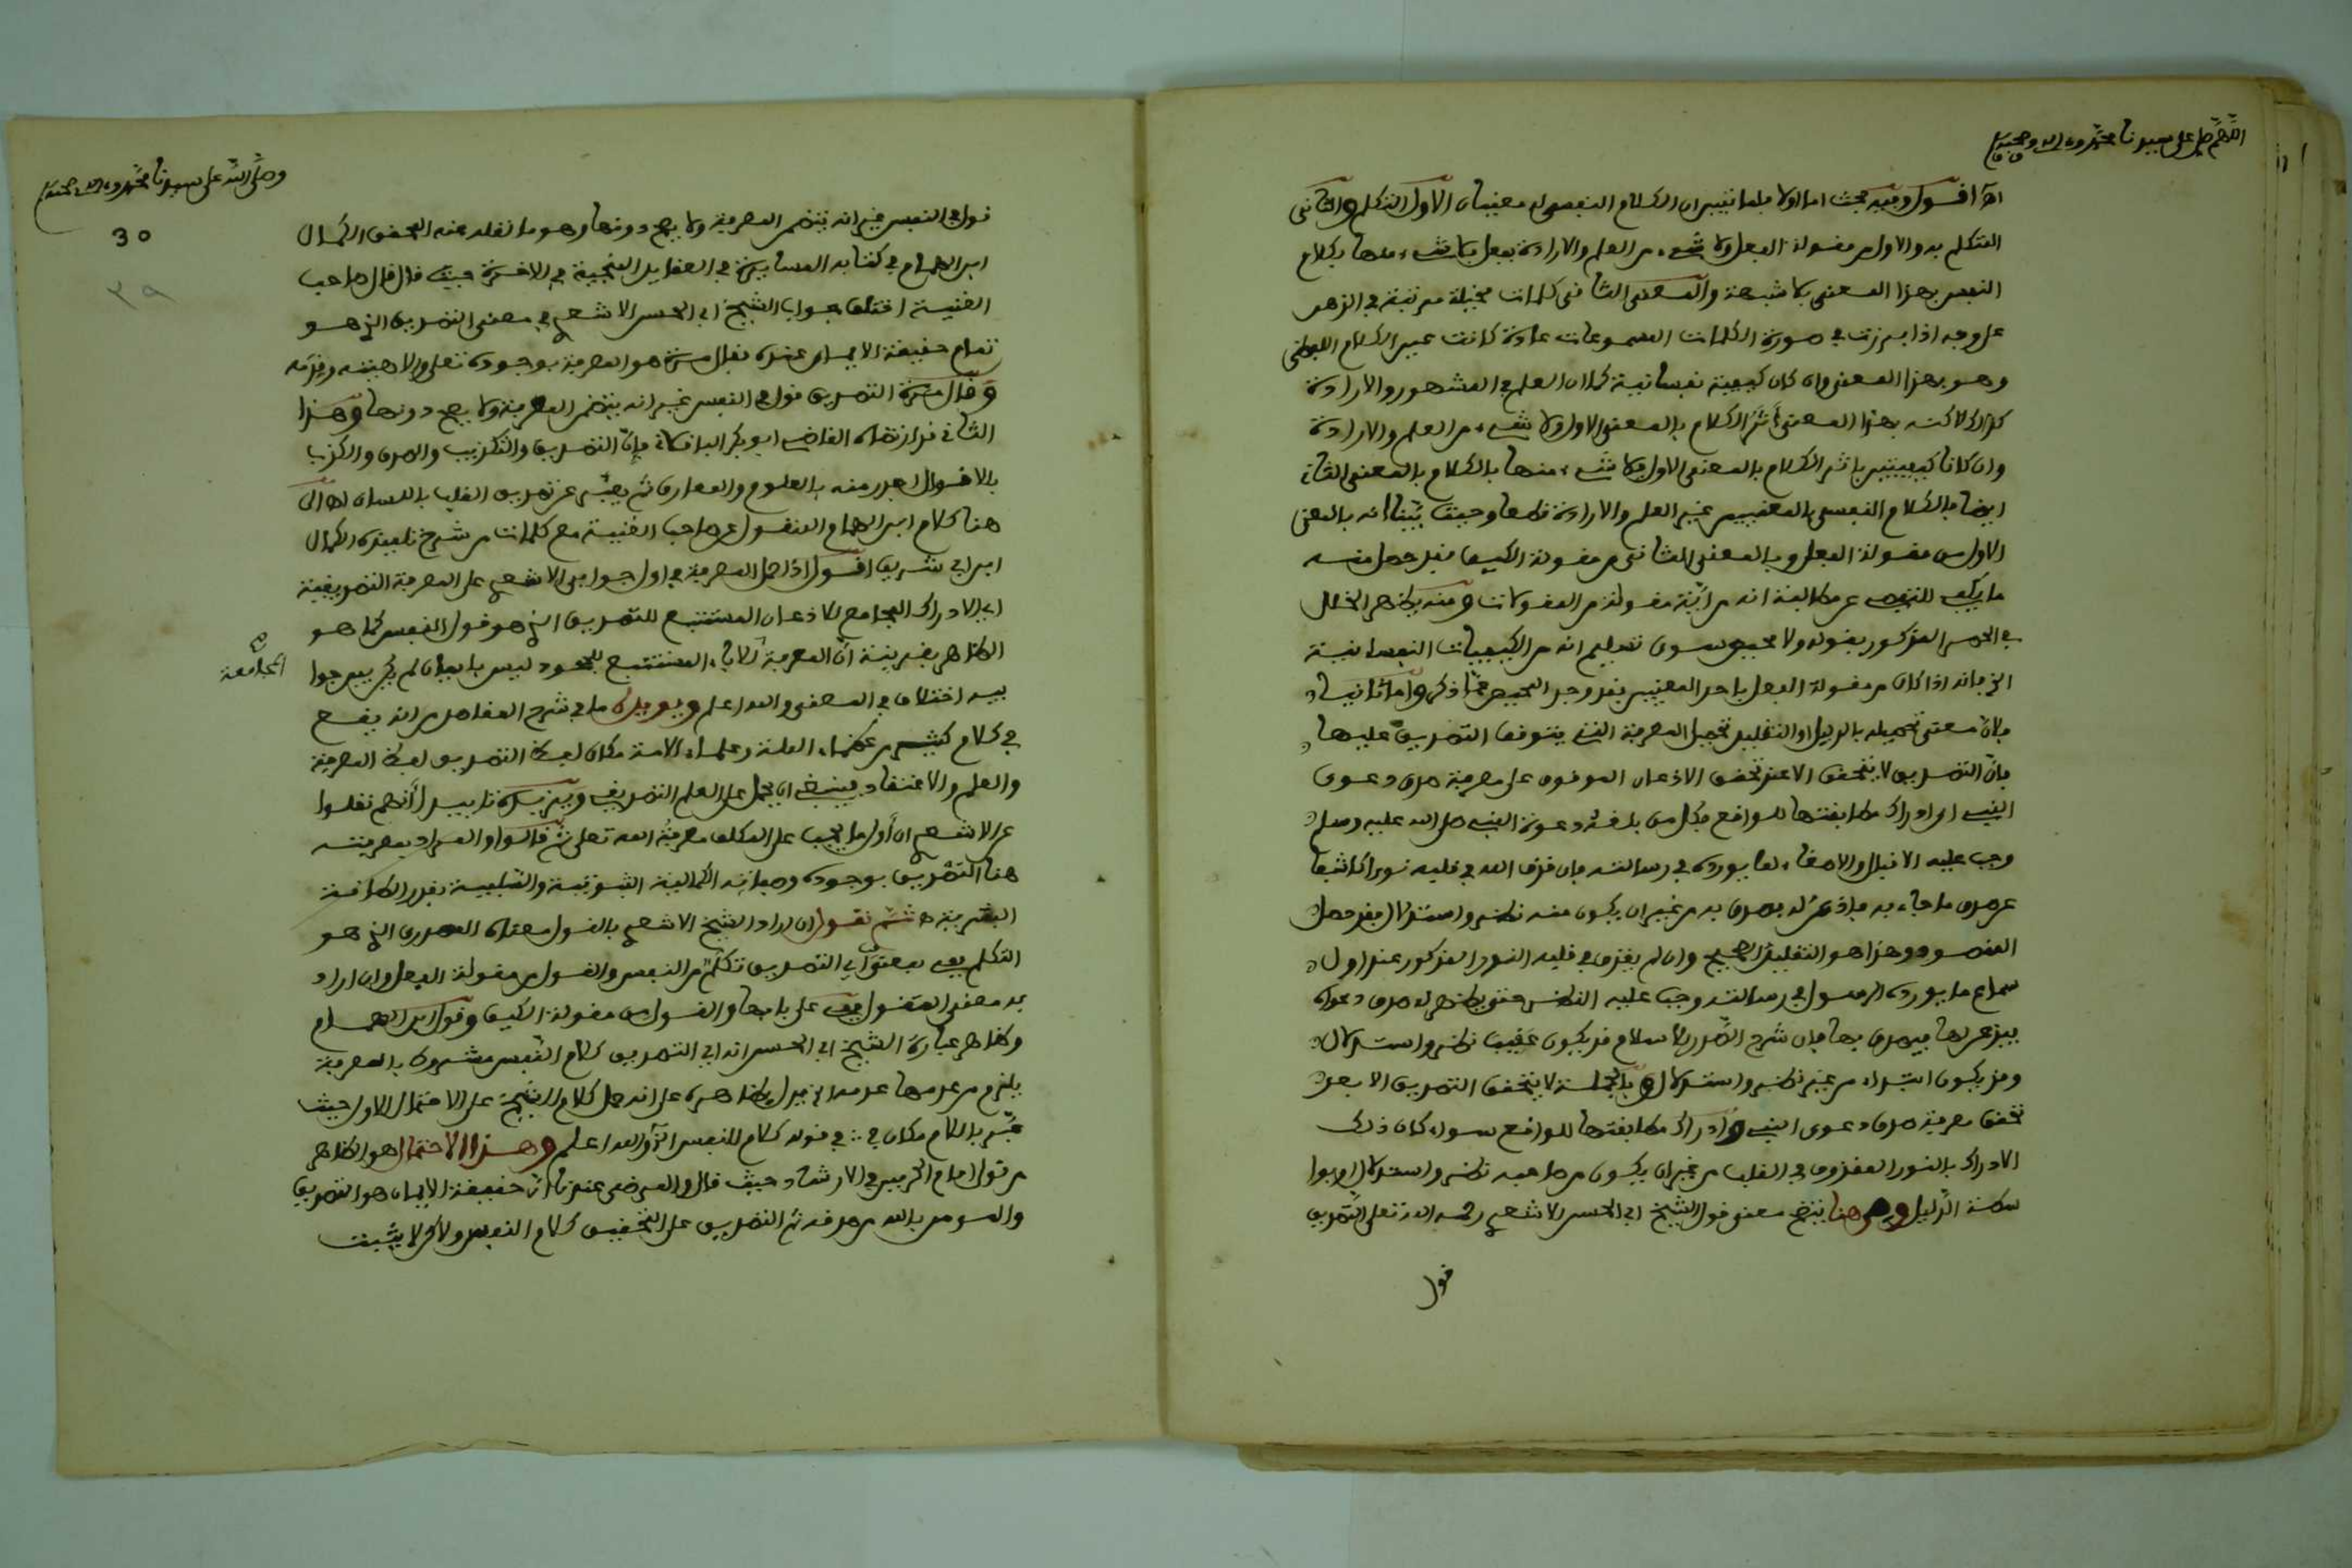 اللهم صل على سيدنا محمد وءاله وصحبه
اهـ اقول وفيه بحث اما اولا فلما تبين ان الكلام النفسي له معنيان الاول التكلم والثاني
المتكلم به والاول من مقولة الفعل ولا شيء من العلم والارادة بفعل فلا شيء منها بكلام
النفس بهذا المعنى بلا شبهة والمعنى الثاني كلمات مخيلة مرتبة في الذهن
على وجه اذا برزت في صورة الكلمات المسموعات عادة كانت عين الكلام اللفظي
وهو بهذا المعنى وان كان كيفية نفسانية كما ان العلم في المشهور والارادة
كذلك لاكنه بهذا المعنى أثر الكلام بالمعنى الاول ولا شيء من العلم والارادة
وان كانا كيفيتين باثر الكلام بالمعنى الاول فلا شيء منها بالكلام بالمعنى الثاني
ايضا فالكلام النفسي بالمعنيين غير العلم والارادة قطعا وحيث تبينا انه بالمعنى
الاول من مقولة الفعل وبالمعنى الثاني من مقولة الكيف فقد حصل منه
ما يكفي للتفصي عن مطالبة انه من أية مقولة من المقولات ومنه يظهر الخلل
في الحصر المذكور بقوله ولا محيص سوى تسليم انه من الكيفيات النفسانية
الخ فانه اذا كان من مقولة الفعل باحد المعنيين فقد وجد المحيص عما ذكر واما ثانيا
فلان معنى تحصيله بالدليل او التقليد تحصيل المعرفة التي يتوقف التصديق عليها
فان التصديق لا يتحقق الا عند تحقق الاذعان الموقوف على معرفة صدق دعوى
النبي اي ادراك مطابقتها للواقع فكل من بلغته دعوة النبي صلى الله عليه وسلم
وجب عليه الاقبال والاصغاء لما يورده في رسالته فان قذف الله في قلبه نورا كاشفا
عن صدق ما جاء به فاذعن له بصدق به من غير ان يكون منه نظر واستدلال فقد حصل
المقصود وهذا هو التقليد الصحيح وان لم يقذف في قلبه النور المذكور عند اول
سماع ما يورده الرسول في رسالته وجب عليه النظر حتى يظهر له صدق دعواه
فيذعن لها فيصدق بها فان شرح الصدر للاسلام قد يكون عقيب نظر واستدلال
وقد يكون ابتداء من غير نظر واستدلال وبالجملة لا يتحقق التصديق الا بعد
تحقق معرفة صدق دعوى النبي وادراك مطابقتها للواقع سواء كان ذلك
الادراك بالنور المقذوف في القلب من غير ان يكون من صاحبه نظر واستدلال او بوا
سطة الدليل ومن هنا يتضح معنى قول الشيخ ابي الحسن الاشعري رحمه الله تعلى التصديق
قول
وصلى الله على سيدنا محمد وءاله وصحبه
30
٢٩
قول في النفس غير انه يتضمن المعرفة ولا يصح دونها وهو ما نقله عنه المحقق الكمال
ابن الهمام في كتابه المسايرة في العقايد المنجية في الاخرة حيث قال قال صاحب
الغنية اختلف جواب الشيخ ابي الحسن الاشعري في معنى التصديق الذي هو
تمام حقيقة الايمان عنده فقال مرة هو المعرفة بوجوده تعلى والاهيته وقدمه
وقال مرة التصديق قول في النفس غير انه يتضمن المعرفة ولا يصح دونها وهذا
الثاني قد ارتضاه القاضي ابو بكر الباقلاني فان التصديق والتكذيب والصدق والكذب
بالاقوال اجدر منه بالعلوم والمعارف ثم يعبر عن تصديق القلب باللسان اهـ الى
هنا كلام ابن الهمام المنقول عن صاحب الغنية مع كلمات من شرح تلميذه الكمال
ابن ابي شريف اقول اذا حمل المعرفة في اول جوابي الاشعري على المعرفة التصديقية
اي الادراك الجامع للاذعان المستتبع للتصديق الذي هو قول النفس كما هو
الظاهر بقرينة ان المعرفة المستتبع للجحود ليس بايمان لم يكن بين جوا
المجامعة
بيه اختلاف في المعنى والله اعلم ويويده ما في شرح المقاصد من انه يقع
في كلام كثير من عظماء الملة وعلماء الامة مكان لفظ التصديق لفظ المعرفة
والعلم والاعتقاد فينبغي ان يحمل على العلم التصديقي ويزيده تاييدا أنهم نقلوا
عن الاشعري ان أول ما يجب على المكلف معرفة الله تعلى ثم قالوا والمراد بمعرفته
هنا التصديق بوجوده وصفاته الكمالية الثبوتية والسلبية بقدر الطاقة
البشرية ثم نقول ان اراد الشيخ الاشعري بالقول معناه المصدري الذي هو
التكلم بمعنى أن التصديق تكلم من النفس والقول من مقولة الفعل وان اراد
به معنى المقول على بابها والقول من مقولة الكيف وقول ابن الهمام
وظاهر عبارة الشيخ ابي الحسن انه اي التصديق كلام النفس مشروط بالمعرفة
يلزم من عدمها عدمه اهـ يدل بظاهره على انه حمل كلام الشيخ على الاحتمال الاول حيث
عبر بالكلام مكان في قوله كلام للنفس الخ والله اعلم وهذا الاحتمال هو الظاهر
من قول امام الحرمين في الارشاد حيث قال والمرضي عندنا أن حقيقة الايمان هو التصديق
والمومن بالله من صدقه ثم التصديق على التحقيق كلام النفس ولاكن لا يثبت